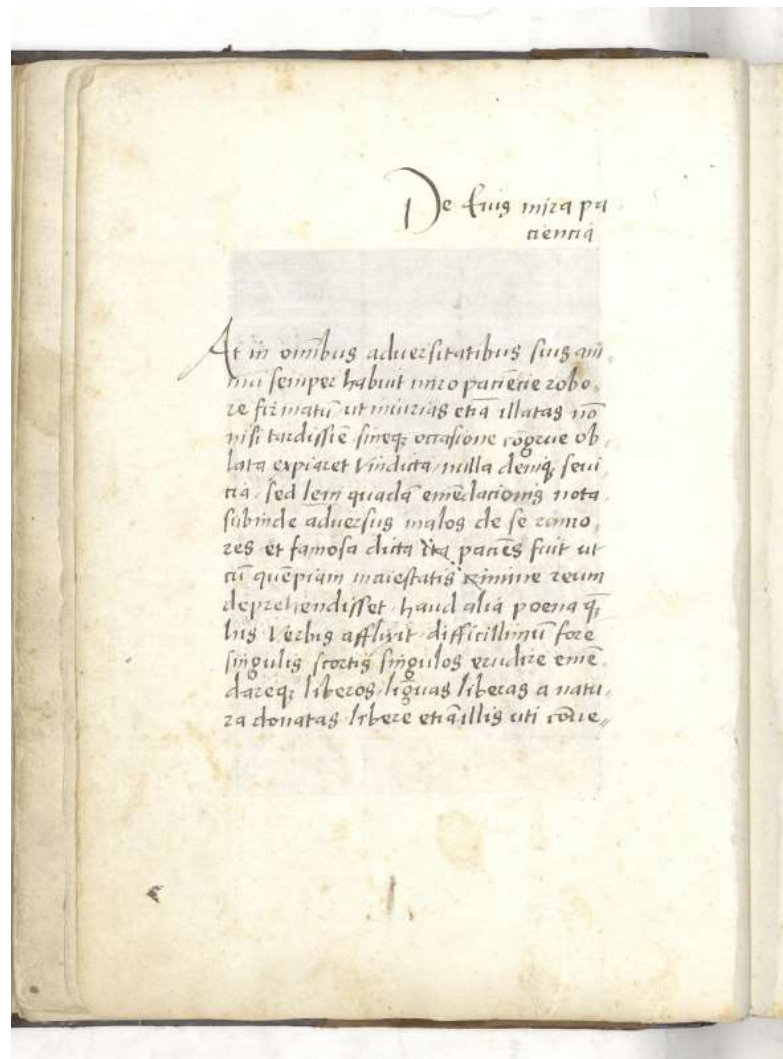 De Euis mira pa
cientia
At in omnibus aduersitatibus suis ani„
mū semper habuit miro paciēcie robo„
re firmatū ut iniurias etiā illatas nō
nisi tardissiē sineqꝫ occasione cōgrue ob„
lata expiaret vindicta nulla demqꝫ seui
cia, sed leni quadā emēdacionis nota
subinde aduersus malos de se rumo„
res et famosa dicta ita paciēs fuit ut
cū quēpiam maiestatis crimine reum
deprehendisset haud alia poena q̄
his verbis afflixit difficillimū fore
singulis scortis singulos erudire emē„
dareqꝫ liberos liguas liberas a natu„
ra donatas libere etiā illis uti cōue„